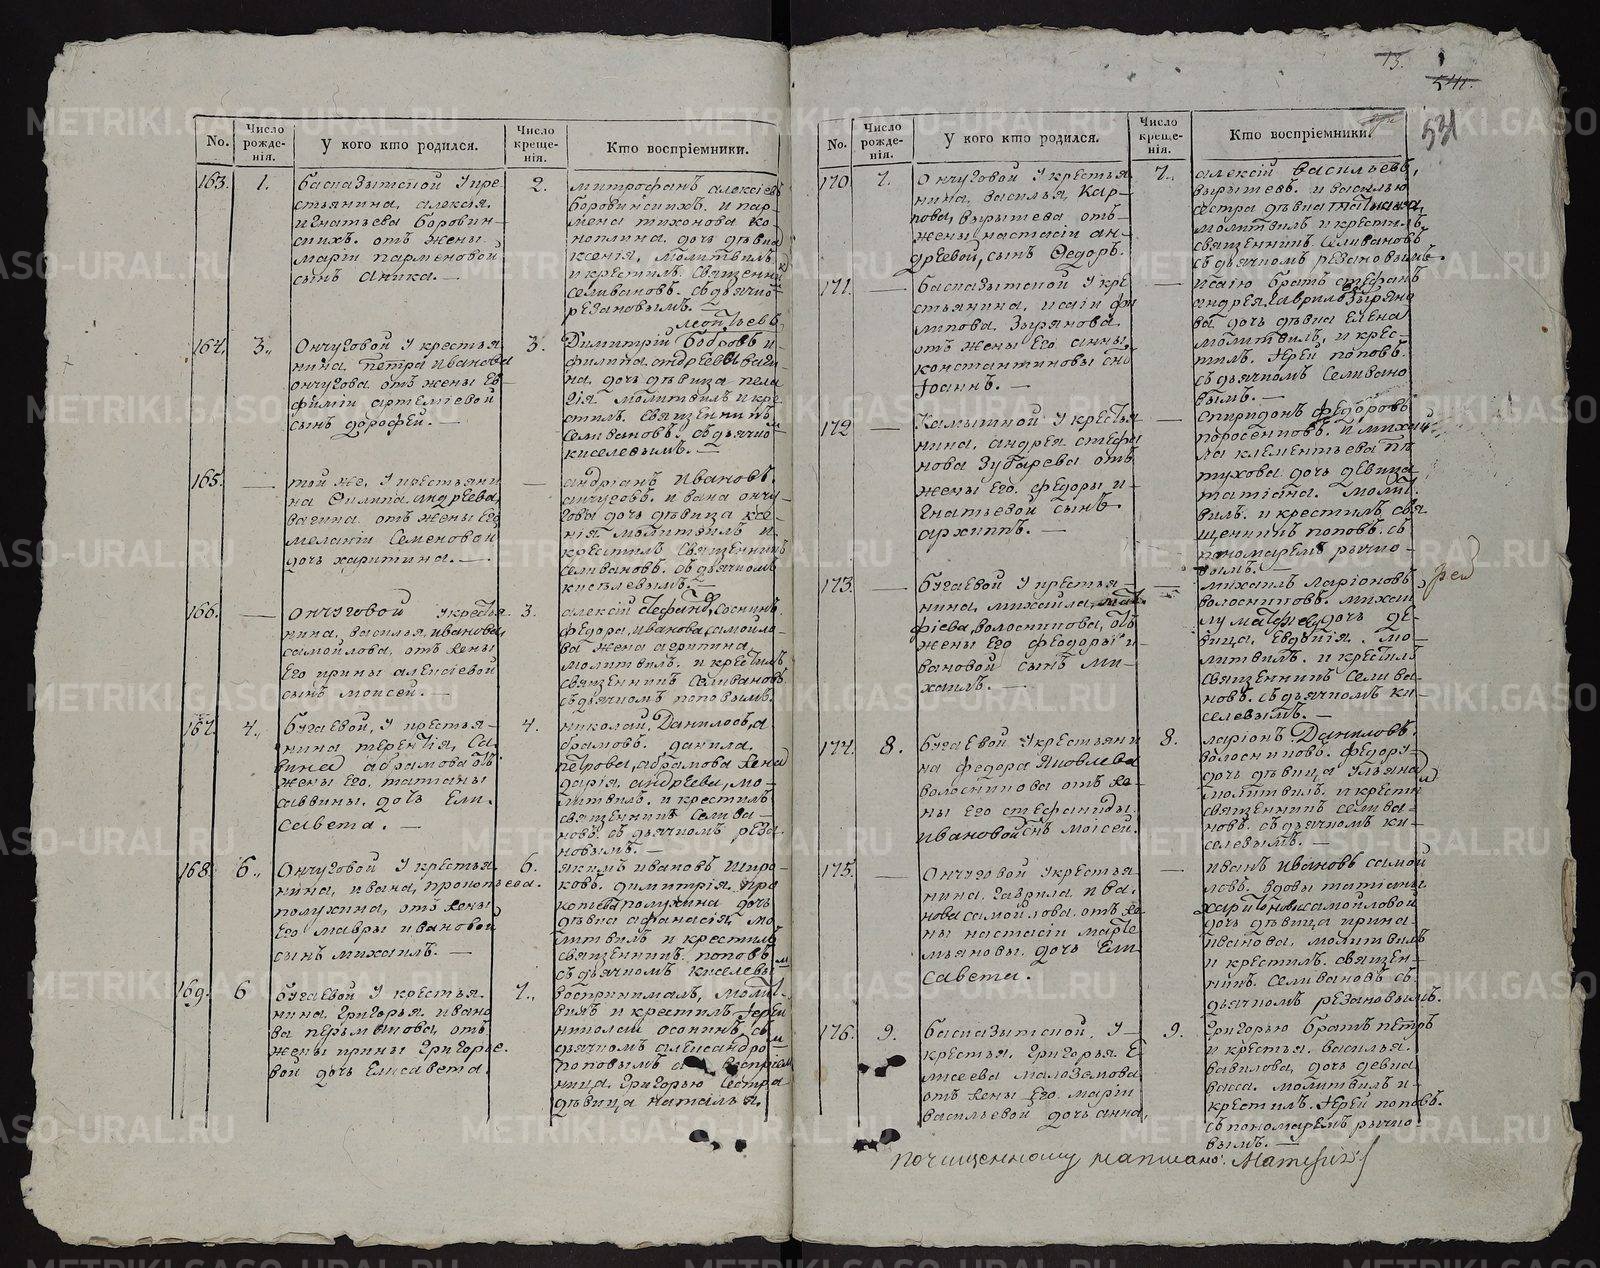 No.
Число рожде-нія.
У кого кто родился.
Число креще-нія.
Кто воспріемники.
163.
1.
баспазытской У кре
стьянина, алексѣя
игнатьева боровин-
скихъ. отъ жены
маріи парменовой
сынъ аника. —
2.
митрофанъ алексіевъ
боровинскихъ. и пар-
мена тихонова ко
ноплина дочь дѣвица
ксенія, молитвилъ
и крестилъ. священни
селивановъ. съ дьячко
резановымъ. —
164.
3.
Ончуговой У крестья
нина, петра иванова
ончугова отъ жены ев-
фиміи артеміевой
сынъ дорофей. —
3.
леонтьевъ
Димитрій бобровъ и
филипа андреева ваги-
на, дочь дѣвица пела
гія молитвилъ и кре
стилъ. священникъ
селивановъ. съ дьячко
киселевымъ. —
165.
—
той же, У крестьяни
на Филипа андреева
вагина отъ жены его
меланіи семеновой
дочь харитина. —
—
андріанъ ивановъ
ончуговъ. ивана ончу-
гова дочь дѣвица ксе-
нія молитвилъ и
крестилъ священникъ
селивановъ. съ дьячкомъ
киселевымъ. —
166.
—
ончуговой У крестья
нина, василья иванова
самойлова, отъ жены
его ирины алексіевой
сынъ моисей. —
3.
алексій
федора, иванова, самойло-
ва жена агрипина
молитвилъ. и крестилъ
священникъ селивановъ
съ дьячкомъ поповымъ.
167.
4.
бугаевой, У крестья-
нина терентія, са
вина абрамова отъ
жены его. татианы
саввины. дочь ели-
савета. —
4.
николай, Даниловъ, а
брамовъ. данила,
петрова, абрамова жена
дарія. андреева, мо-
литвилъ. и крестилъ
священникъ селива-
новъ съ дьячкомъ реза
новымъ. —
168.
6.
Ончуговой У крестья
нина, ивана, прокопьева
полухина, отъ жены
его мавры ивановой
сынъ михаилъ. —
6.
якимъ ивановъ широ-
ковъ. димитрія про
копьева полухина дочь
дѣвица афанасія, мо
литвилъ и крестилъ
священникъ поповъ
съ дьячкомъ киселевы
169.
6
бугаевой У крестья-
нина. григорья ивано
ва первакова, отъ
жены ирины григорье-
вой дочь елисавета.
7.
воспринималъ, молит-
вилъ и крестилъ іерей
николай осокинъ, съ
дьячкомъ александро
поповымъ
ница. григорью сестра
дѣвица наталья.
13.
541.
531
No.
Число рожде-нія.
У кого кто родился.
Число креще-нія.
Кто воспріемники.
170
7.
Ончуговой У крестья
нина, василья, кар-
пова, вырытева отъ
жены настасіи ан-
дреевой, сынъ Ѳедоръ.
7.
алексій васильевъ,
вырытевъ. и василью
сестра дѣвица татьяна,
молитвилъ и крестилъ
священникъ селивановъ
съ дьячкомъ резановымъ.
171.
—
баспазытской У кре
стьянина, исаіи фи
липова. зырянова.
отъ жены его анны
константиновы сы
Іоаннъ. —
—
исаію братъ стефанъ
андрея, гаврилъ зыряно
ва дочь дѣвица елена
молитвилъ, и крес-
тилъ. іерей поповъ.
съ дьячкомъ селивано
вымъ. —
172
—
Камышной У крестья
нина, андрея стефа
нова зубарева отъ
жены его. федоры и-
гнатьевой сынъ
архипъ. —
—
спиридонъ федоровъ
поросенковъ. и михай
ла клементьева пѣ
тухова дочь девица
татіана. молит
вилъ. и крестилъ свя
щенникъ поповъ. съ
пономаремъ рычко-
вымъ. —
173.
—
бугаевой У крестья-
нина, михайла,
фіева, волоснинова, отъ
жены его феодоры и-
вановой сынъ ми-
хаилъ. —
—
михаилъ ларіоновъ
волоснинковъ. михаи
лу дочь де-
вица, евдокія. мо-
литвилъ. и крестилъ
священникъ селива
новъ. съ дьячкомъ ки-
селевымъ. —
174.
8.
бугаевой У крестьяни
на федора яковлева
волоснинова отъ же-
ны его стефаниды.
ивановой сынъ моисей.
8.
ларіонъ Даниловъ,
волоснинковъ. федору
дочь дѣвица ульяна
молитвилъ. и крести
священникъ селива-
новъ. съ дьячкомъ ки-
селевымъ. —
175.
—
Ончуговой У крестья-
нина. гаврила ива-
нова самойлова отъ же-
ны настасіи марте
мьяновы. дочь ели
савета.
—
иванъ ивановъ самой
ловъ. вдовы татіаны
самойловой
дочь дѣвица ирина
иванова, молитвилъ
и крестилъ. священ-
никъ. селивановъ съ
дьячкомъ резановымъ.
176.
9.
баспазытской. У-
крестья. григорья. е-
лисеева малоземова
отъ жены его. маріи
васильевой дочь анна,
9.
григорью братъ петръ
и крестья. василья.
вавилова, дочь девица
васса. молитвилъ и-
крестилъ. іерей поповъ.
съ пономаремъ рычко-
вымъ. —
почищенному написано: